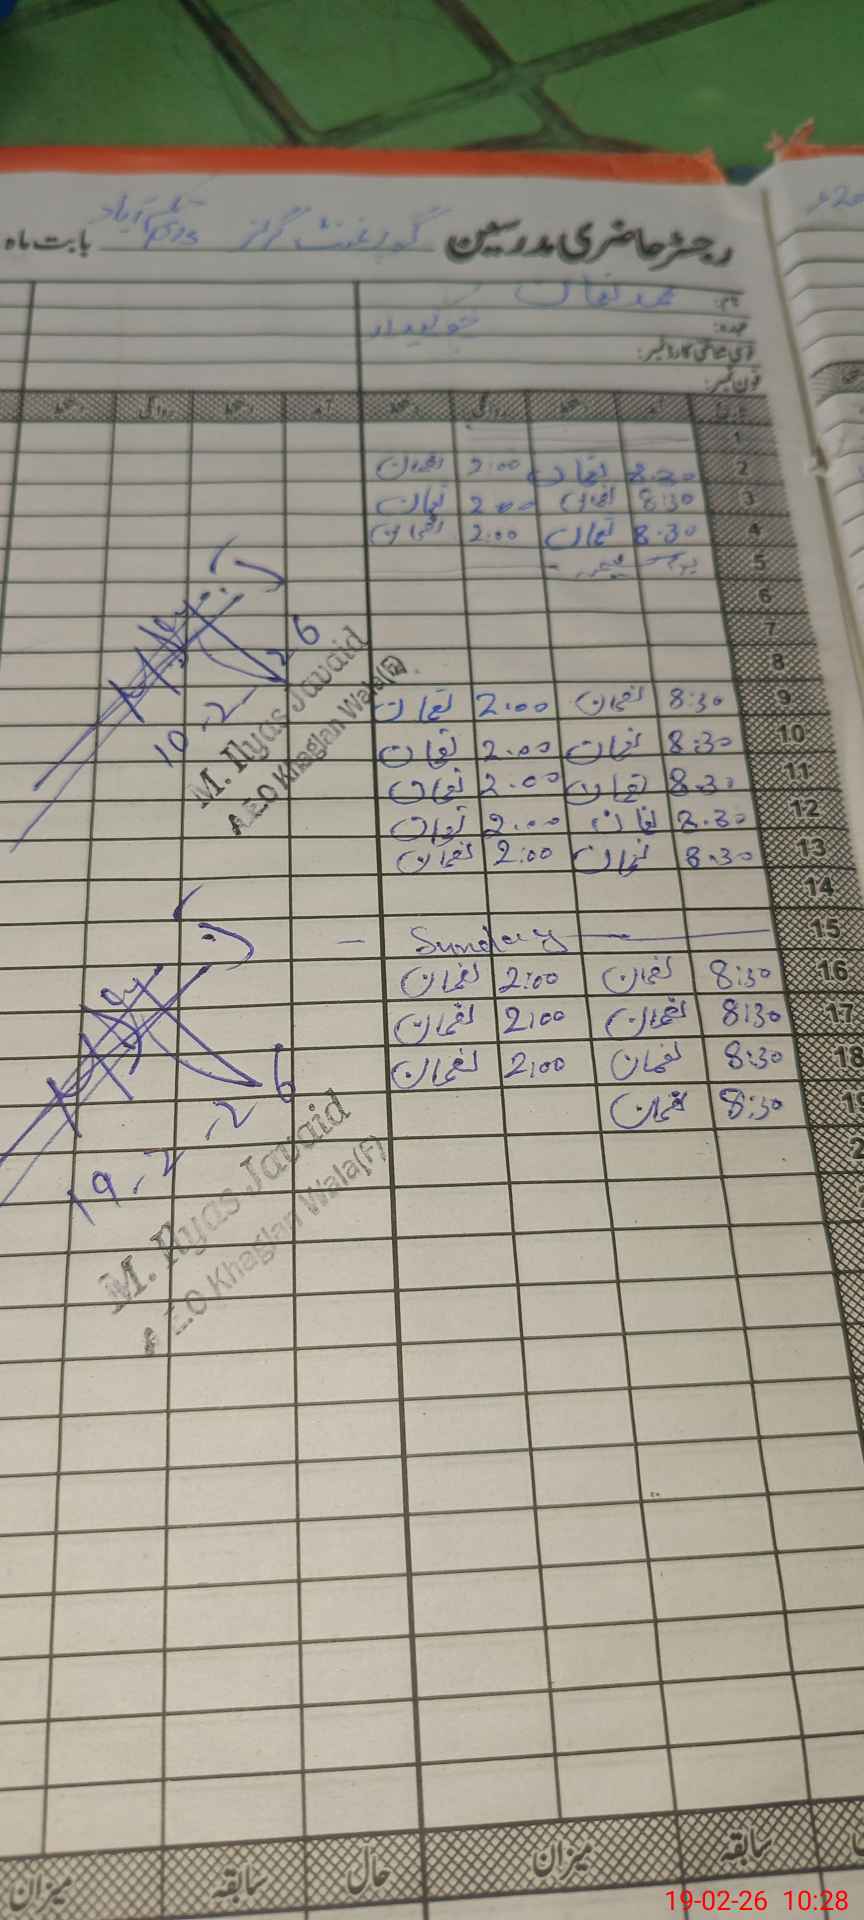 رجسٹر حاضری مدرسین گورنمنٹ گرلز بابت ماہ
نام: محمد نعمان
عہدہ: چوکیدار
قومی شناختی کارڈ نمبر:
فون نمبر:
تاریخ آمد دستخط روانگی دستخط آمد دستخط روانگی دستخط
1
2 8:30 نعمان 2:00 نعمان
3 8:30 نعمان 2:00 نعمان
4 8:30 نعمان 2:00 نعمان
5 یوم کشمیر
6
7
8
9 8:30 نعمان 2:00 نعمان
10 8:30 نعمان 2:00 نعمان
11 8:30 نعمان 2:00 نعمان
12 8:30 نعمان 2:00 نعمان
13 8:30 نعمان 2:00 نعمان
14
15 Sunday
16 8:30 نعمان 2:00 نعمان
17 8:30 نعمان 2:00 نعمان
18 8:30 نعمان 2:00 نعمان
19 8:30 نعمان
10-2-26
M. Ilyas Javaid
A.E.O Khaglan Wala(F)
19-2-26
M. Ilyas Javaid
A.E.O Khaglan Wala(F)
سابقہ میزان حال سابقہ میزان
19-02-26 10:28